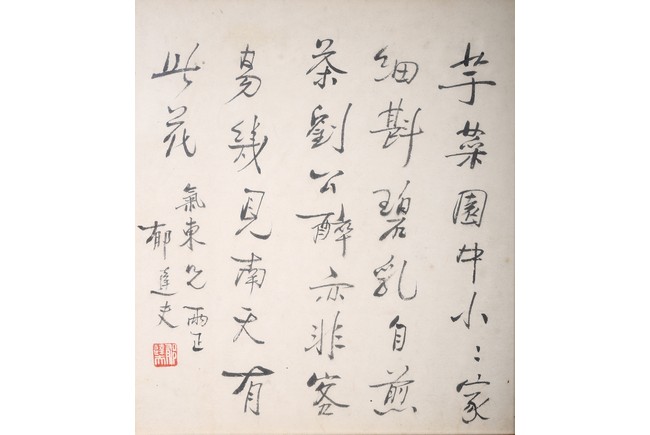 芋菜園中小〻家
細斟碧乳自煎
茶劉公醉亦非容
易幾見南天有
此花
氣東兄兩正
郁達夫